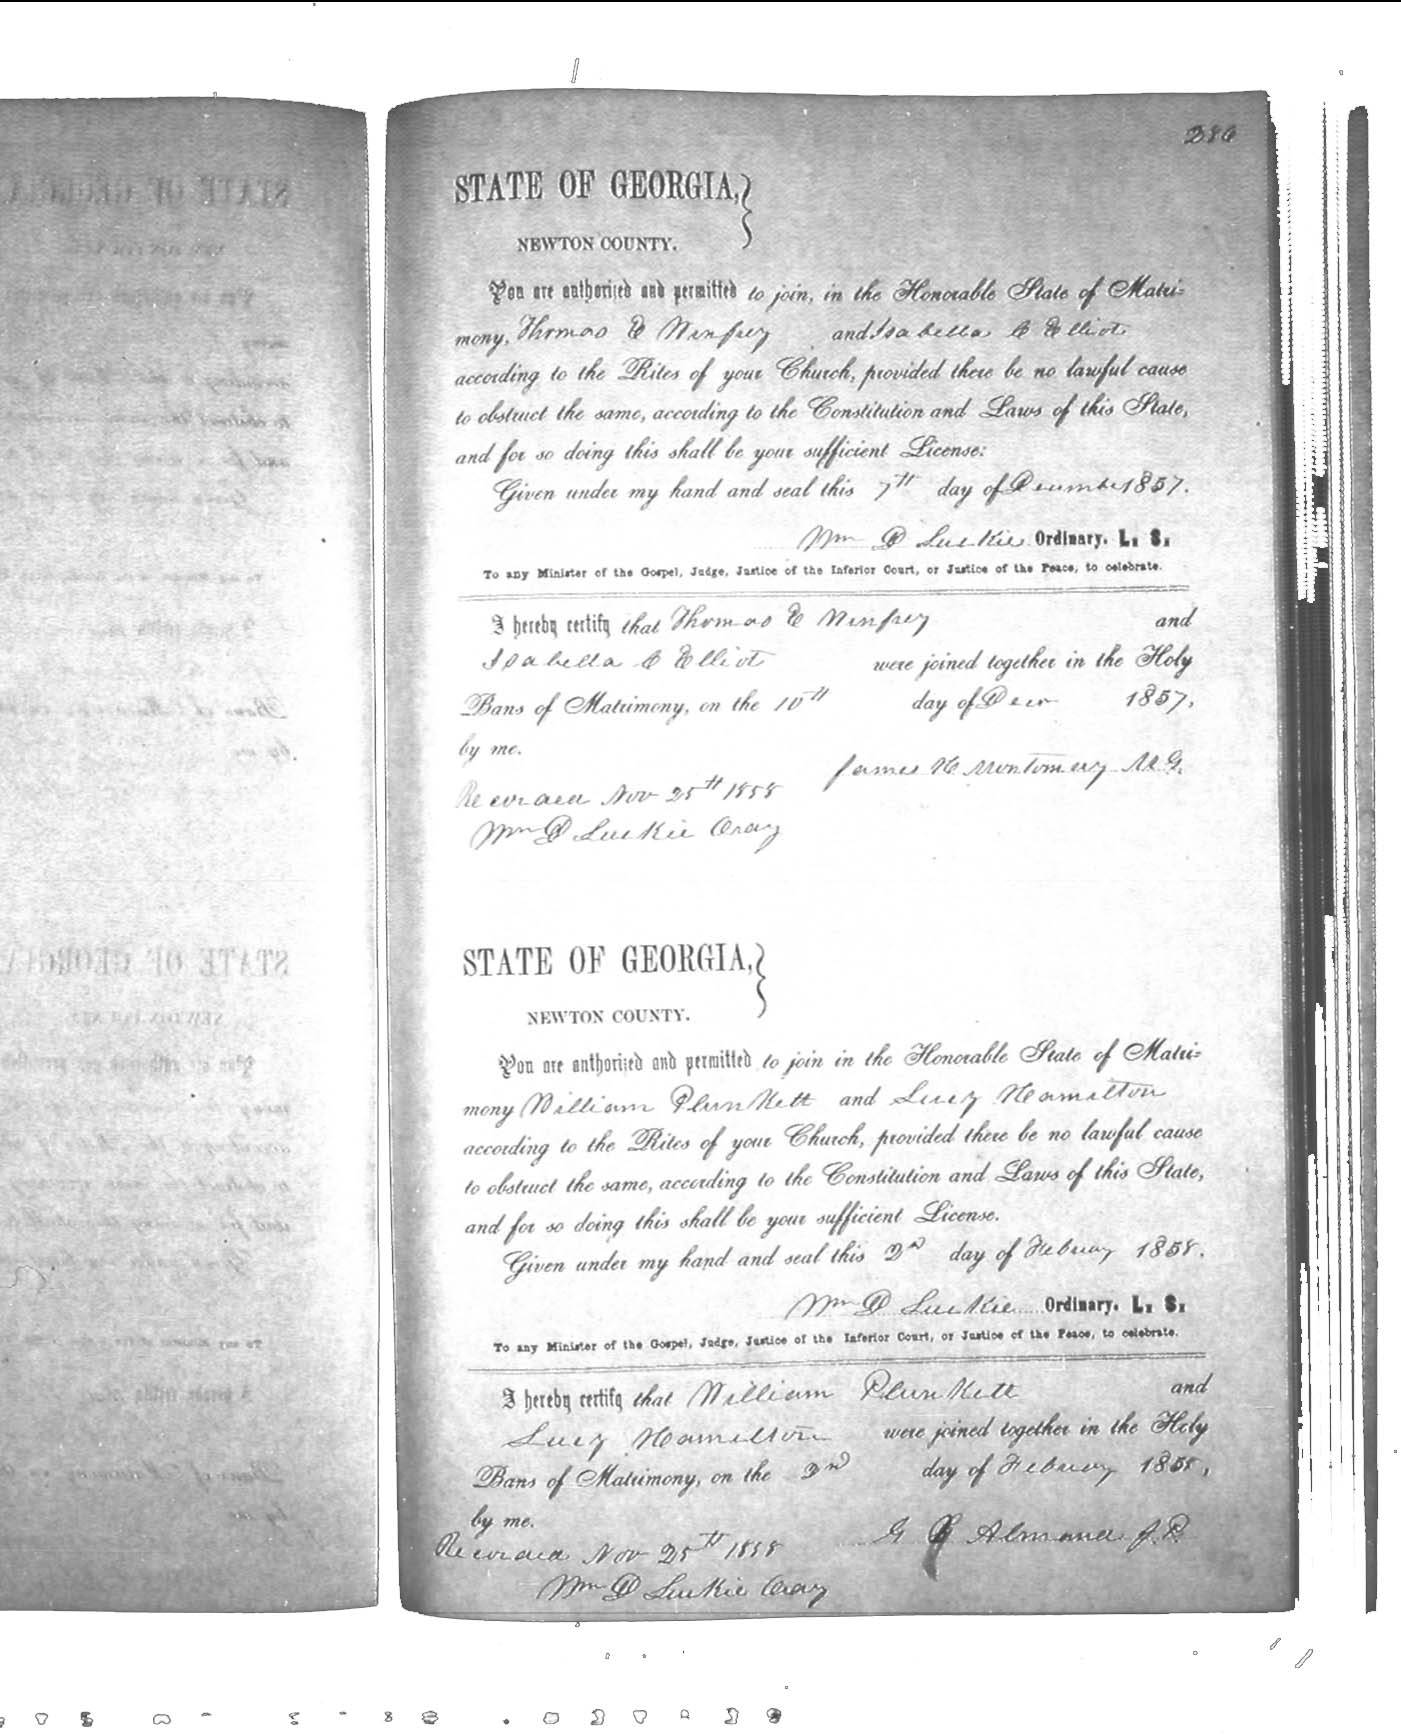 286
STATE OF GEORGIA,
NEWTON COUNTY.
You are authorized and permitted to join, in the Honorable State of Matri-
mony, Thomas E Winfrey and Isabella C Elliot
according to the Rites of your Church, provided there be no lawful cause
to obstruct the same, according to the Constitution and Laws of this State,
and for so doing this shall be your sufficient License:
Given under my hand and seal this 7th day of December 1857.
Wm D Luckie Ordinary. L. S.
To any Minister of the Gospel, Judge, Justice of the Inferior Court, or Justice of the Peace, to celebrate.
I hereby certify that Thomas E Winfrey and
Isabella C Elliot were joined together in the Holy
Bans of Matrimony, on the 10th day of Decr 1857,
by me.
James H Montomery M.G.
Recorded Nov 25th 1858
Wm D Luckie Orday
STATE OF GEORGIA,
NEWTON COUNTY.
You are authorized and permitted to join in the Honorable State of Matri-
mony William Plunkett and Lucy Hamilton
according to the Rites of your Church, provided there be no lawful cause
to obstruct the same, according to the Constitution and Laws of this State,
and for so doing this shall be your sufficient License.
Given under my hand and seal this 2nd day of Februay 1858.
Wm D Luckie Ordinary. L. S.
To any Minister of the Gospel, Judge, Justice of the Inferior Court, or Justice of the Peace, to celebrate.
I hereby certify that William Plunkett and
Lucy Hamilton were joined together in the Holy
Bans of Matrimony, on the 2nd day of Februay 1858,
by me.
G Almand J.P.
Recorded Nov 25th 1858
Wm D Luckie Orday